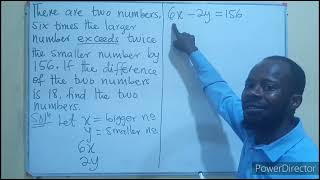 There are two numbers,
six times the larger
number exceeds twice
the smaller number by
156. If the difference
of the two numbers
is 18, find the two
numbers.
Soln Let x = bigger no
y = smaller no
6x
2y
6x - 2y = 156
PowerDirector